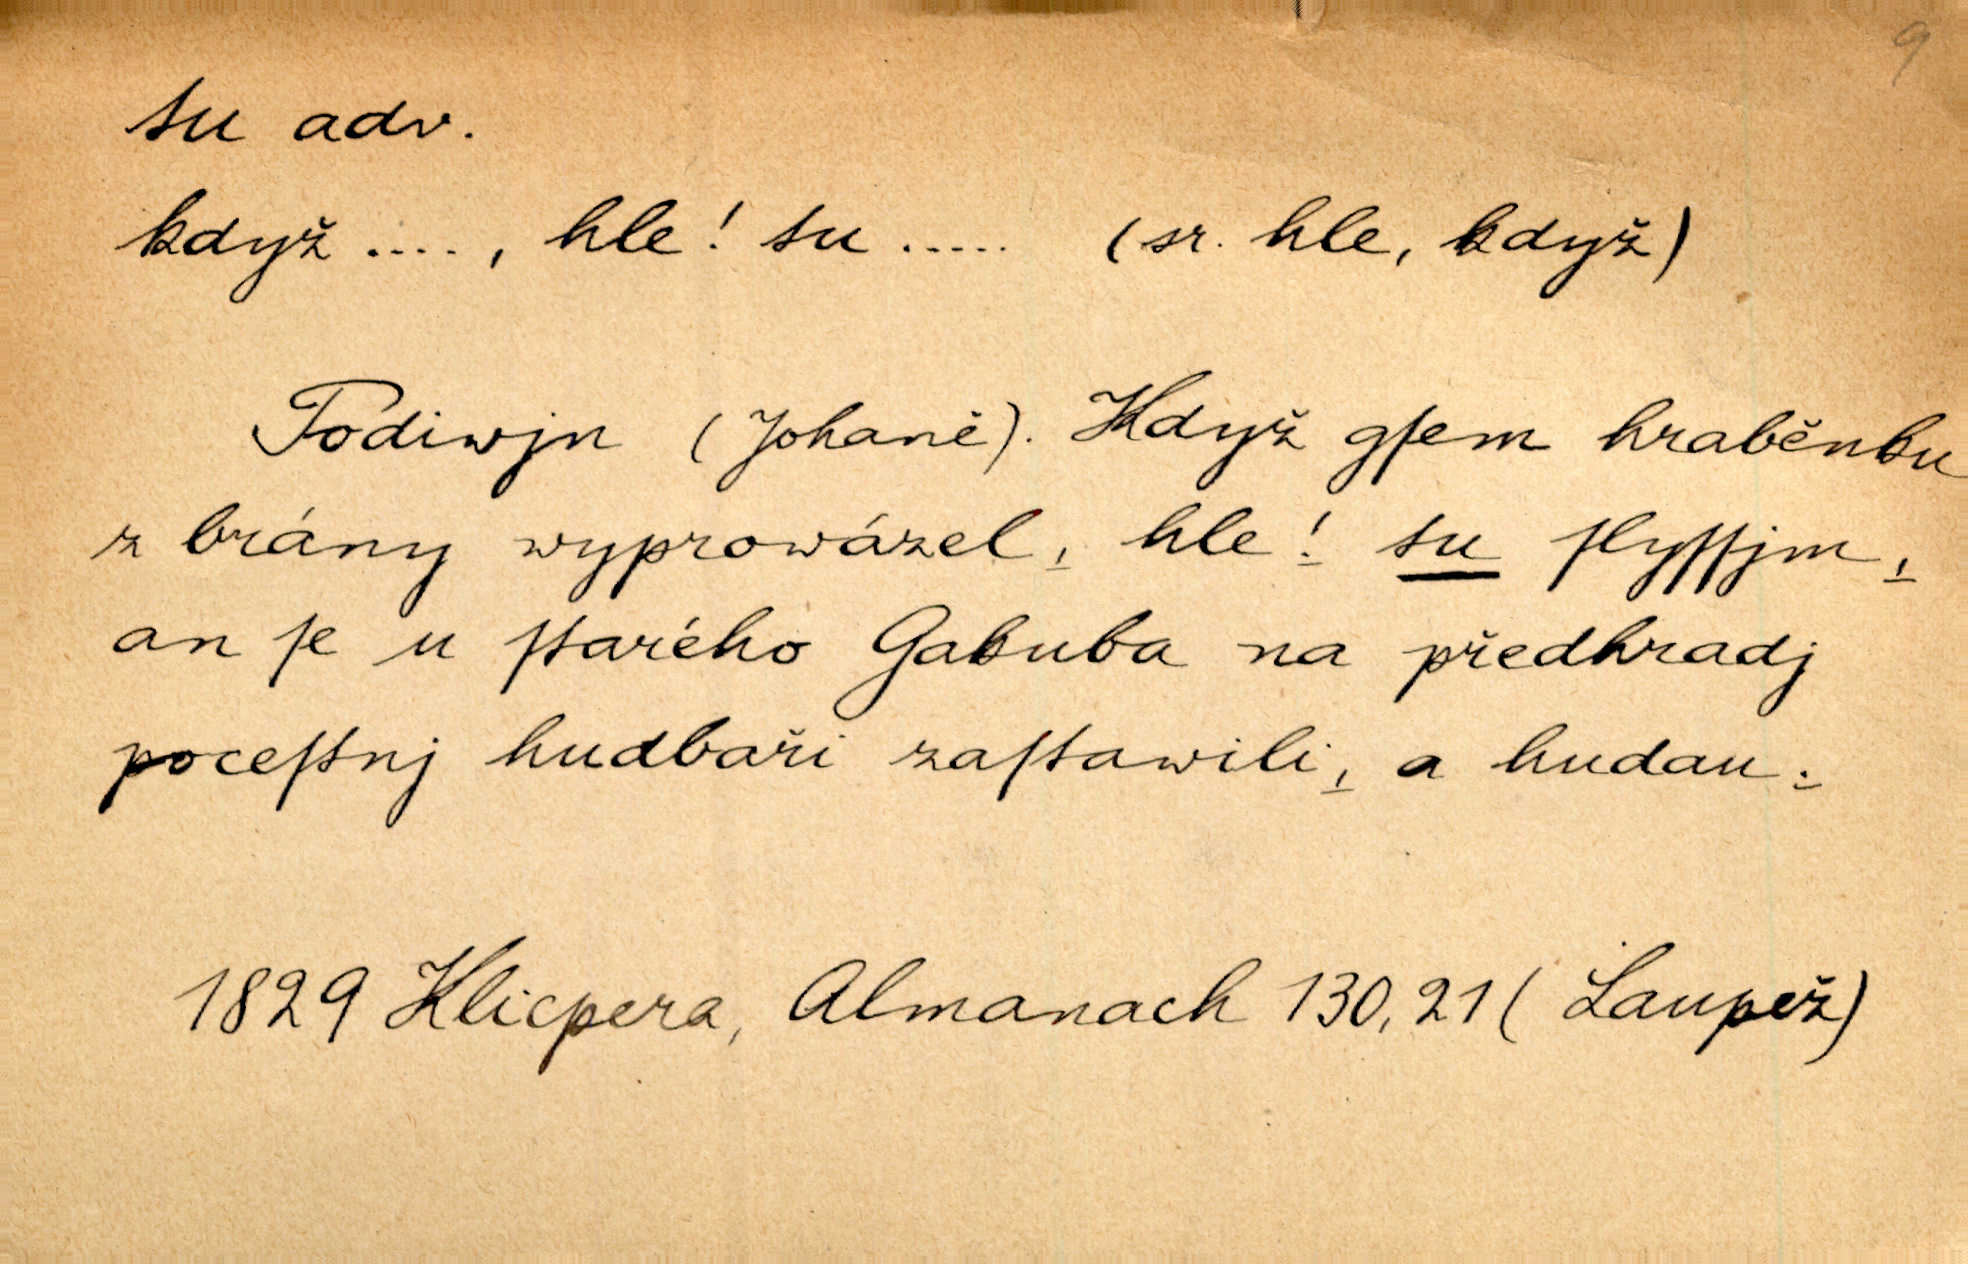 9
tu adv.
když ...., hle! tu ..... (sr. hle, když)
Podiwjn (Johaně). Když gſem hraběnku
z brány wyprowázel, hle! tu ſlyſſjm,
an ſe u ſtarého Gakuba na předhradj
poceſtnj hudbaři zaſtawili, a hudau.
1829 Klicpera, Almanach 130,21 (Laupež)